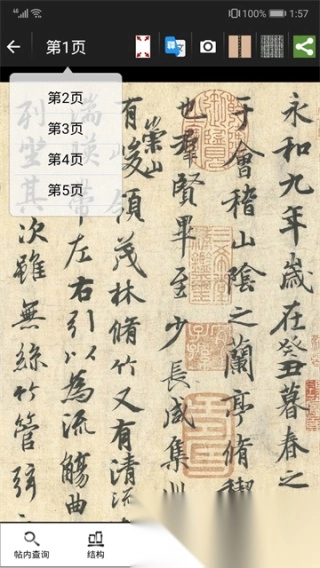 46 100% 1:57
第1页
第2页
第3页
第4页
第5页
永和九年歲在癸丑暮春之
于會稽山陰之蘭亭脩禊
也羣賢畢至少長咸集此
有崇山峻領茂林脩竹又有清流
湍暎帶左右引以為流觴曲
列坐其次雖無絲竹管弦
帖内查询
结构